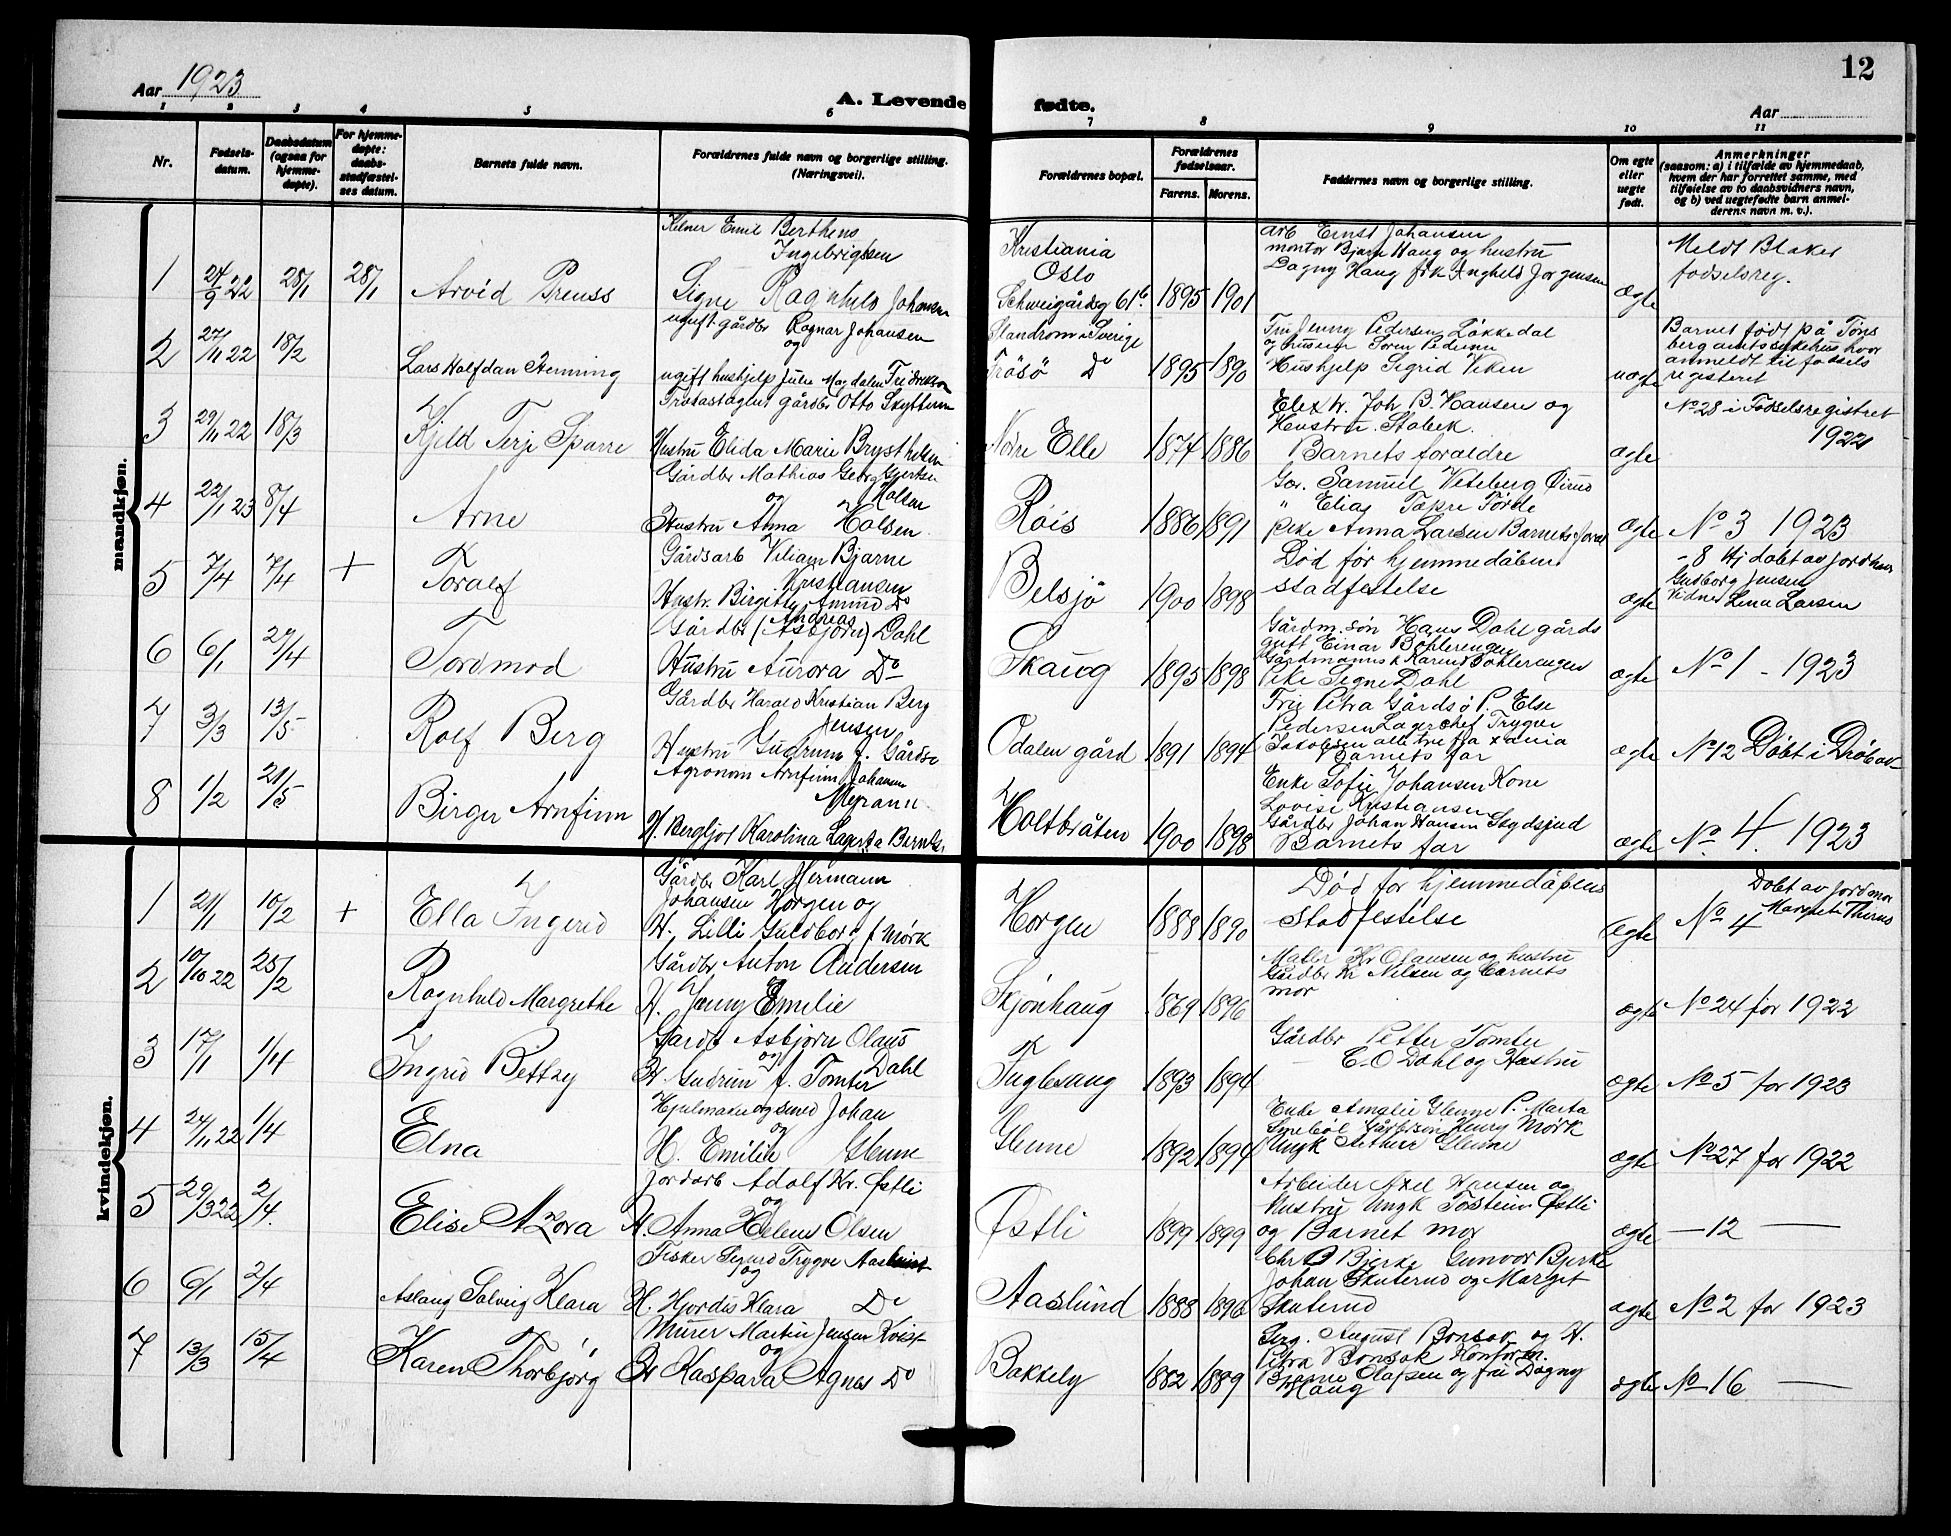 12
Aar 1923
A. Levende fødte.
Aar
1 2 3 4 5 6 7 8 9 10 11
Nr.
Fødsels-
datum.
Daabsdatum
(ogsaa for
hjemme-
døpte).
For hjemme-
døpte:
daabs-
stadfæstel-
ses datum.
Barnets fulde navn.
Forældrenes fulde navn og borgerlige stilling.
(Næringsvei).
Forældrenes bopæl.
Forældrenes
fødselsaar.
Farens. Morens.
Faddernes navn og borgerlige stilling.
Om egte
eller
uegte
født.
Anmerkninger
(saasom: a) i tilfælde av hjemmedaab,
hvem der har forrettet samme, med
tilføielse av to daabsvidners navn,
og b) ved uegtefødte barn anmel-
derens navn m. v.).
mandkjøn.
1 24/9 22 28/1 28/1 Arvid Preuss
Kelner Emil Berthens
Ingebrigtsen
Signe Ragnhild Johansen
Kristiania
Oslo
Schweigårdsg 61b
1895 1901
Arb Ernst Johansen
montør Bjarn Haug og hustru
Dagny Haug frk Inghild Jørgensen
ægte
Meldt Blaker
fødselsreg.
2 27/11 22 18/2 Lars Halfdan Henning
ugift gårdbr Ragnar Johansen
og
ugift hushjelp Julie Magdalen Fredrikson
Sverige
Frösö Do
1895 1890
Fru Jenny Pedersen Løkkedal
Søren Pedersen
Hushjelp Sigrid Viken
uægte
Barnet født på Tøns
berg amtssykehus hvor
anmeldt til fødsels
registeret
3 29/11 22 18/3 Kjeld Terje Sparre
gårdbr Otto Skyttern
Hustru Elida Marie
Nordre Elle
1874 1886
Joh B. Hansen og
Hustru. Stabek.
Barnets foraldre
ægte
No 28 i Fødselsregistret
1922
4 22/1 23 8/4 Arne
Gårdbr Mathias Georg Gjerksen
og Holsen
Hustru Alma Holsen
Røis
1886 1891
Gør. Samuel Veteberg
" Elias
Pike Anna Larsen Barnets forald
ægte
No 3 1923
5 7/4 7/4 + Toralf
Gårdsarb Viliam Bjarne
Kristiansen
Hustr. Birgitte Do
Belsjø
1900 1898
Død før hjemmedåbens
stadfestelse
ægte
- 8 Hj døbt av jordmor
Gudborg Jensen
Vidne Lena Larsen
6 6/1 29/4 Tordmod
Andreas
Gårdbr (Asbjørn) Dahl
Hustru Aurora Do
Skaug
1895 1898
Gårdm. søn Hans Dahl gårds
gutt Einar Bøhlerengen
Gårdmanns k Karen Bøhlerengen
Pike Signe Dahl
ægte
No 1 - 1923
7 3/3 13/5 Rolf Berg
Gårdbr Harald Kristian Berg
Jensen
Hustru Gudrun f. Gårdsø
Odalen gård
1891 1894
Fru Petra Gårdsø P. Else
Pedersen Lagerchef Trygve
Jakobsen alle tre fra Xania
Barnets far
ægte
No 12 Døbt i Drøbak
8 1/2 21/5 Birger Arnfinn
Agronom Arnfinn Johansen
H. Bergljot Karolina
Holtbråten
1900 1898
Enke Sofie Johansen Kone
Lovise Kristiansen
Gårdbr Johan Hansen
Barnets far
ægte
No. 4. 1923
kvindekjøn.
1 21/1 10/2 + Ella Ingerid
Gårdbr Karl Hermann
Johansen Horgen og
H. Lilli Guldborg f Mørk
Horgen
1888 1890
Død før hjemmedåpens
Stadfestelse
ægte
No 4
Døbt av jordmor
Margrete
2 10/10 22 25/2 Ragnhild Margrethe
Gårdbr. Anton Andersen
H. Jenny Emilie
Skjønhaug
1869 1896
Maler Kr Olausen og hustru
Gårdbr Kr Nilsen og barnets
mor
ægte
No 24 for 1922
3 17/1 1/4 Ingrid Bettzy
Gårdb Asbjørn Olaus
og Dahl
H. Gudrun f. Tomter
Fuglesang
1893 1894
Gårdbr Petter Tomter
— C. O Dahl og Hustru
ægte
No 5 for 1923
4 24/11 22 1/4 Elna
Hjulmaker og smed Johan
og
H. Emilie Glenne
Glenne
1892 1894
Enke Amalie Glenne P. Marta
Smebøl Gårdbrsøn Henry Mørk
Ungk Arthur Glenne
ægte
No 27 for 1922
5 29/3 22 2/4. Elise Alora
Jordarb Adolf Kr. Østli
og
H. Anna Helene Olsen
Østli
1899 1899
Arbeider Axel Hansen og
Hustru Ungk Torstein Østli
og Barnet mor
ægte
— 12 —
6 6/1 2/4 Aslaug Solveig Klara
Fisker Sigurd Trygve Aaslund
og
H. Hjørdis Klara Do
Aaslund
1888 1896
Chr B Bjerke Gunvor Bjerke
Johan Skuterud og Margit
Skuterud
ægte
No 2 for 1923
7 13/3 15/4 Karen Thorbjørg
Murer Martin Jensen Kvist
og
H Kaspara Agnes Do
Bakkely
1882 1889
Serg. August Bonsak og H.
Petra Bonsak Kontorm.
Bjarne Olafsen og fru Dagny
Haug
ægte
No 16 —